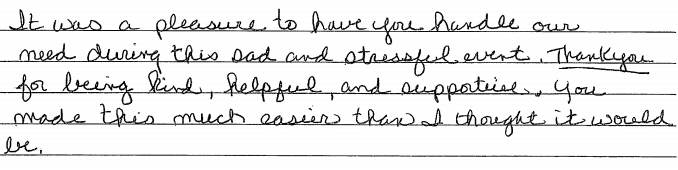 It was a pleasure to have you handle our
need during this sad and stressful event. Thank you
for being kind, helpful, and supportive. You
made this much easier than I thought it would
be.